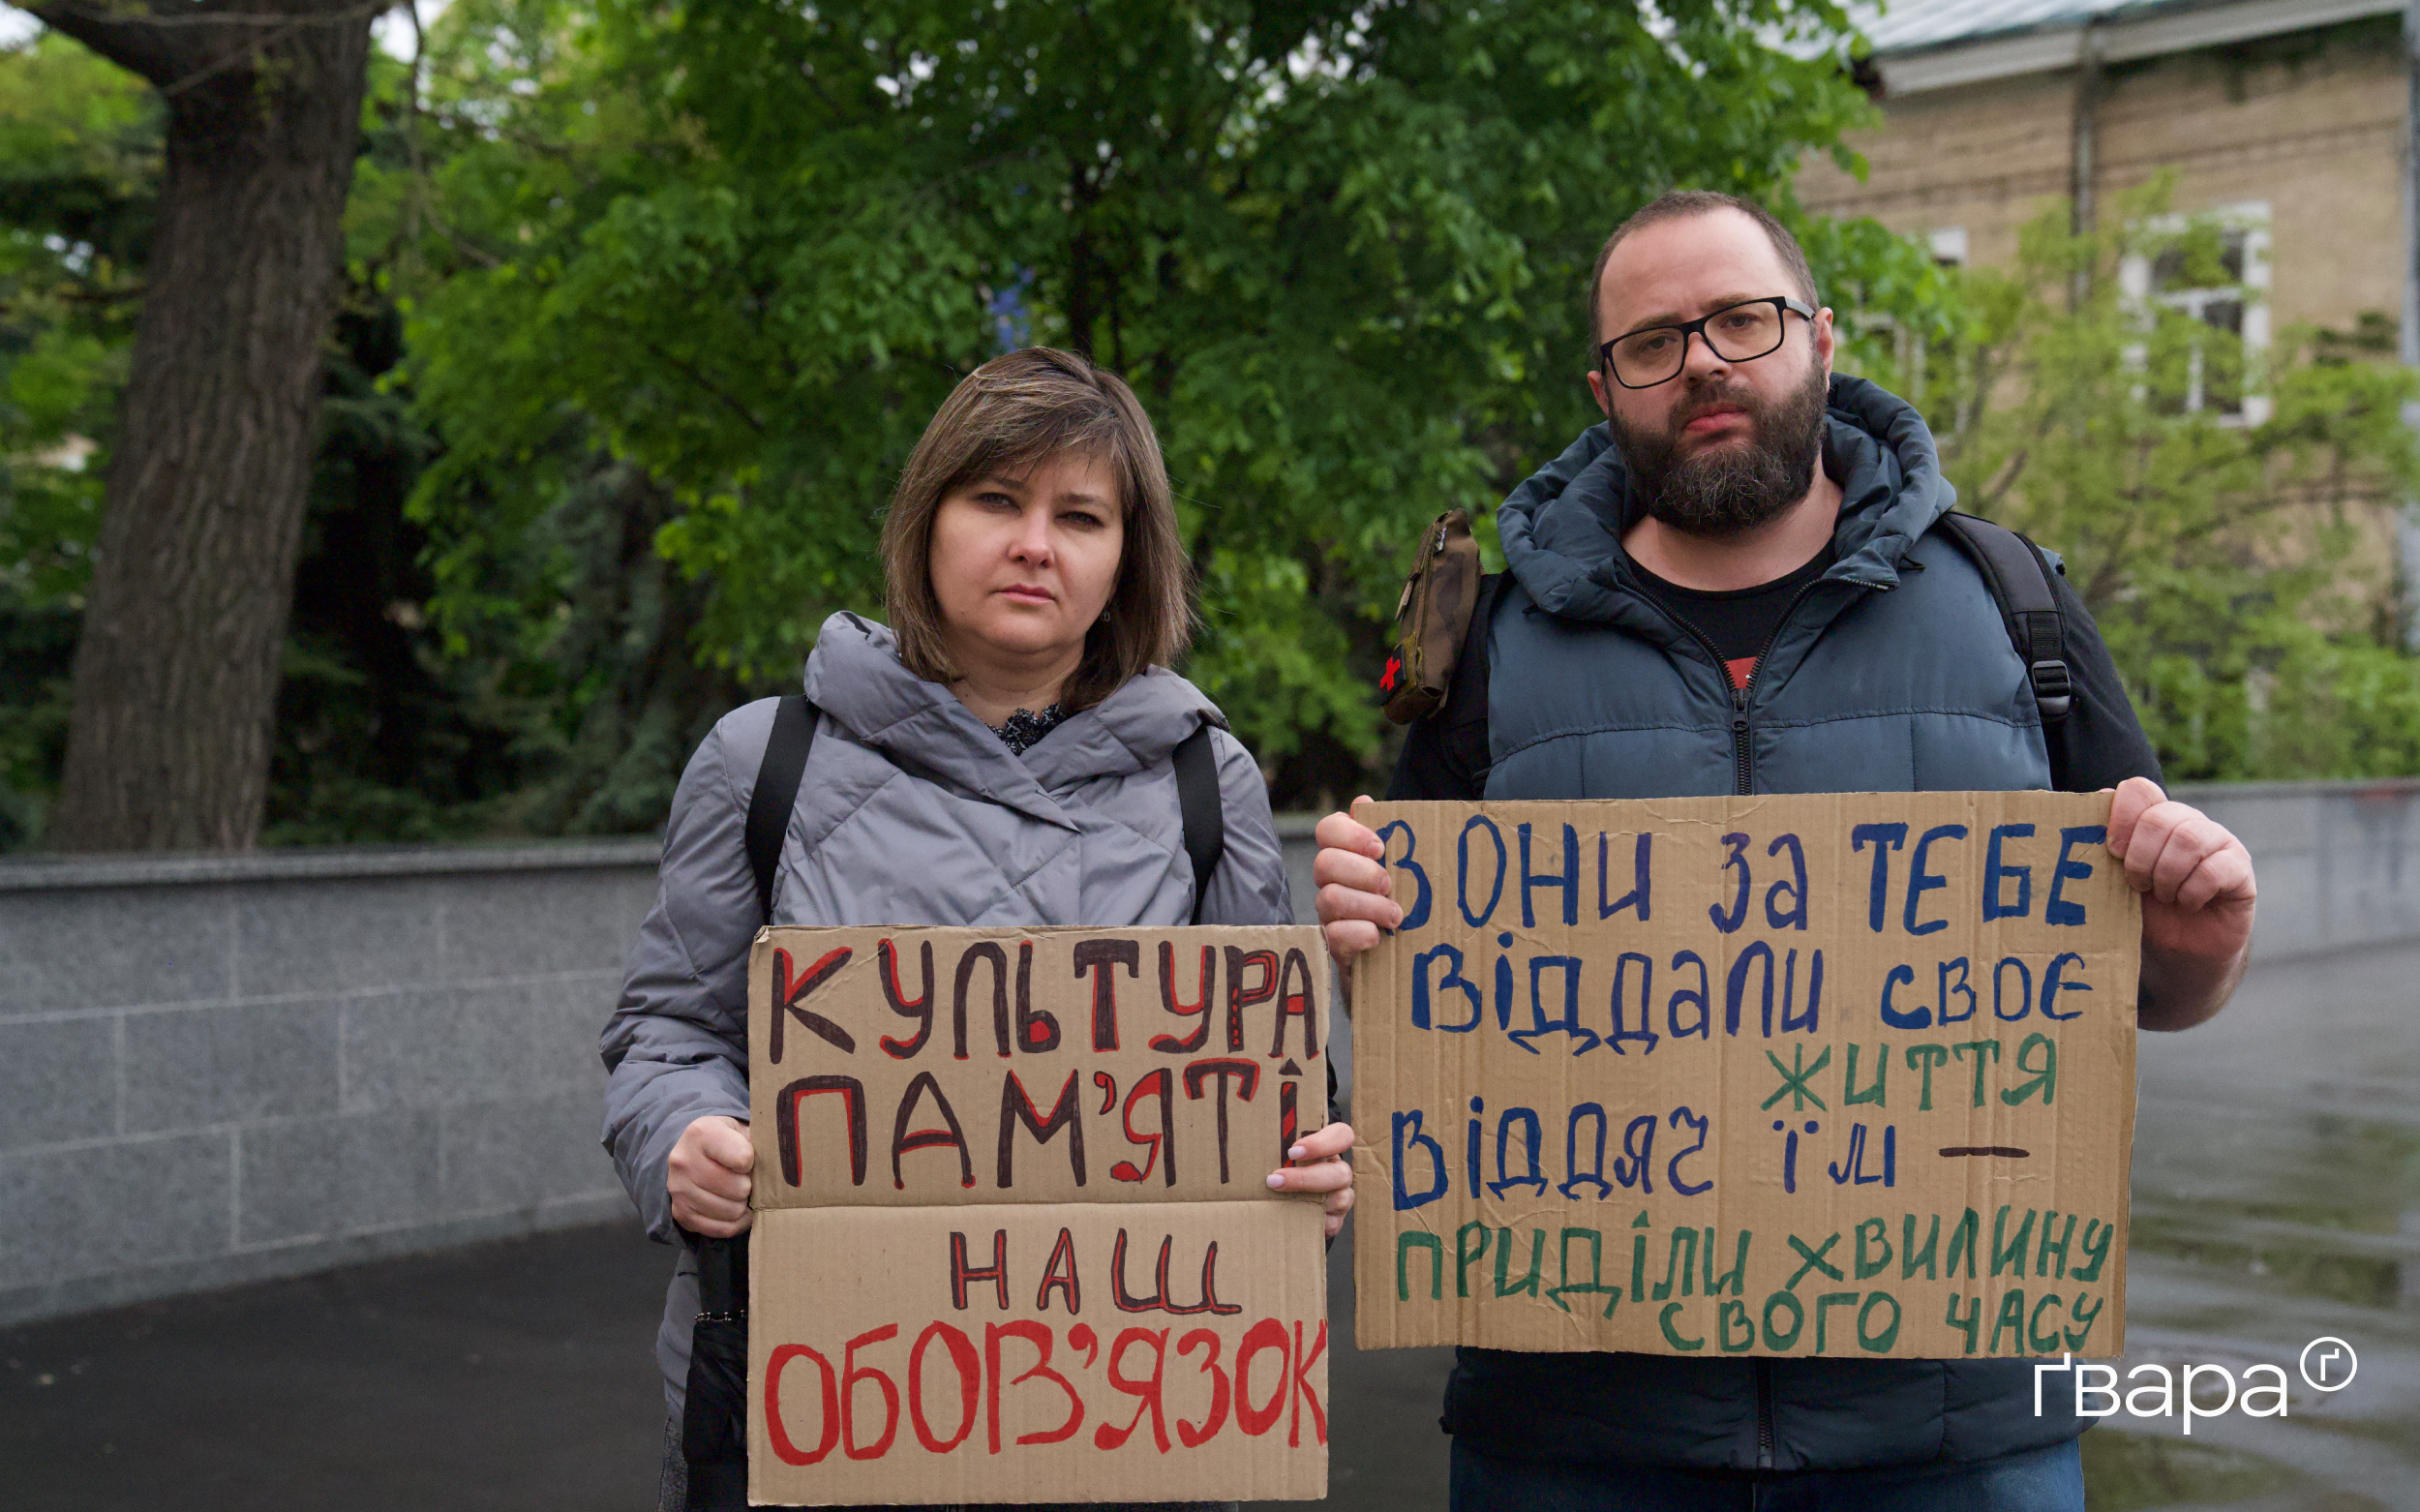 КУЛЬТУРА
ПАМ'ЯТІ
НАШ
ОБОВ'ЯЗОК
ВОНИ ЗА ТЕБЕ
ВІДДАЛИ СВОЄ
ЖИТТЯ
ВІДДЯЧ ЇМ —
ПРИДІЛИ ХВИЛИНУ
СВОГО ЧАСУ
ґвара ґ